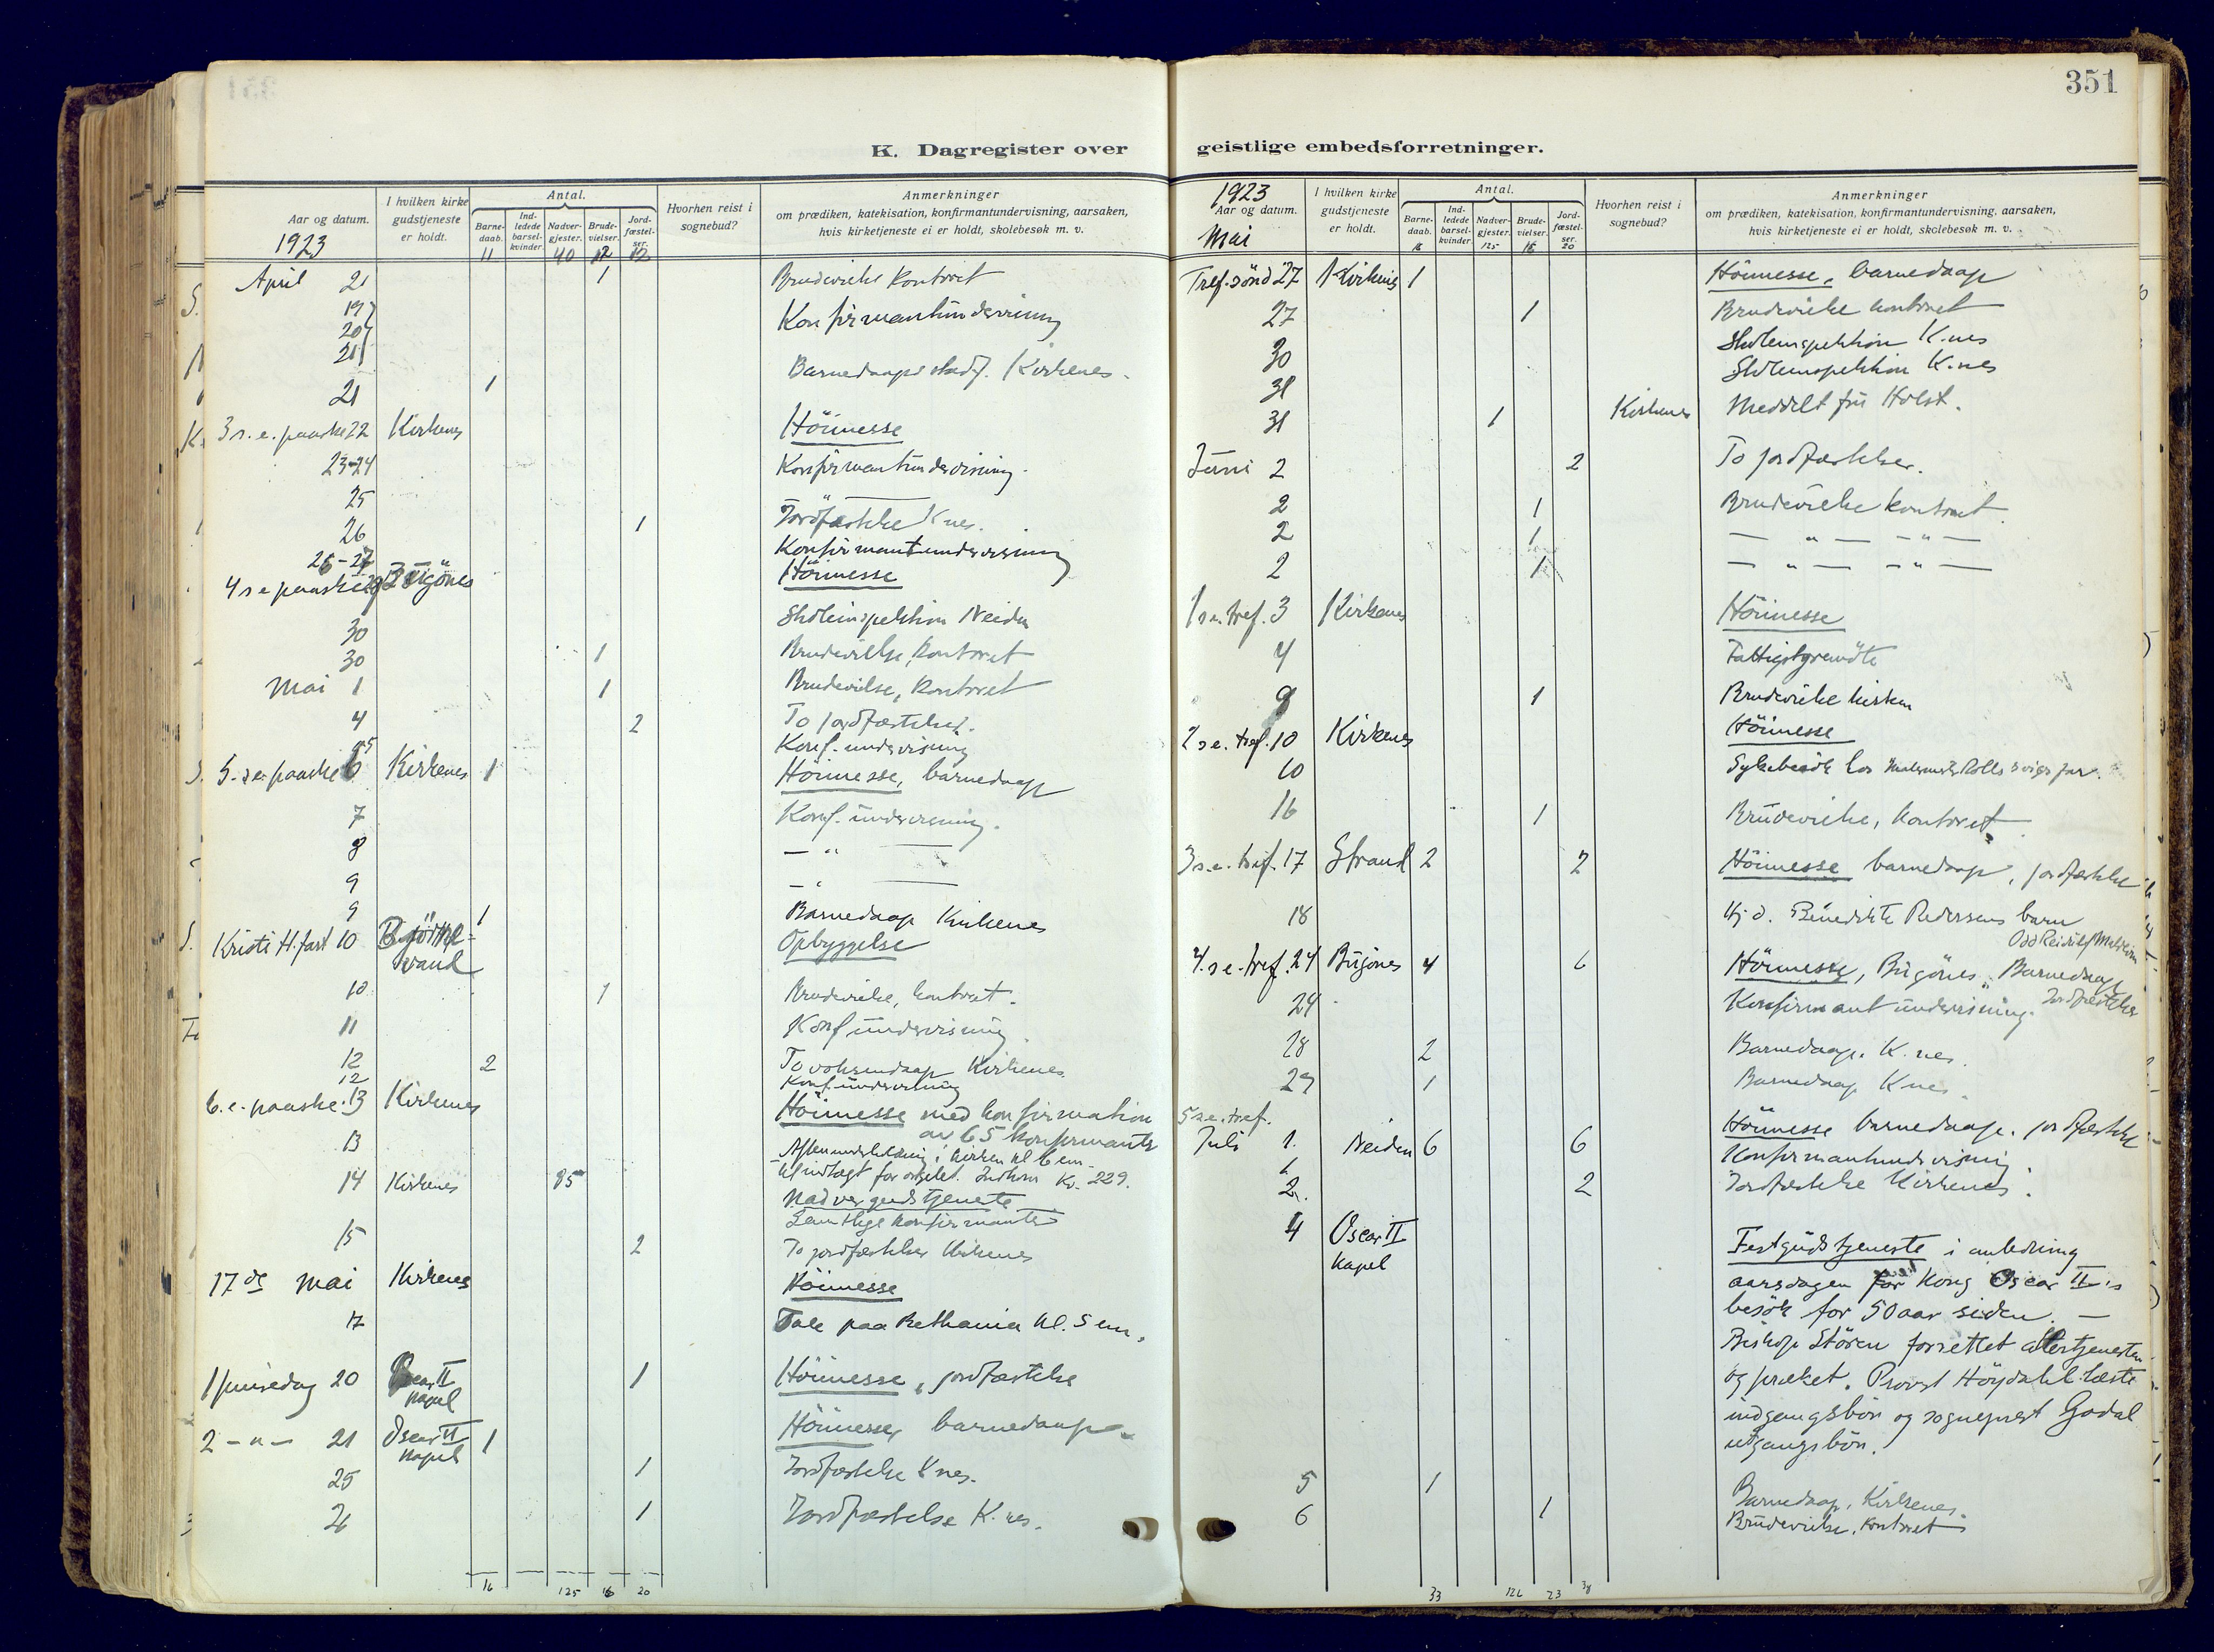 351
K. Dagregister over geistlige embedsforretninger.
Aar og datum.
1923
I hvilken kirke gudstjeneste er holdt.
Antal.
Barne-daab. 11
Ind-ledede barsel-kvinder.
Nadver-gjester. 40
Brude-vielser. 12
Jord-fæstel-ser. 12
Hvorhen reist i sognebud?
Anmerkninger
om prædiken, katekisation, konfirmantundervisning, aarsaken,
hvis kirketjeneste ei er holdt, skolebesøk m. v.
April 21 1 Brudevielse kontoret
19
20 Konfirmantundervisning
21
21 1 Barnedaap Kirkenes.
3 s. e. paaske 22 Kirkenes Höimesse
23-24 Konfirmantundervisning.
25
26 1 Jordfæstelse K.nes.
26-27 Konfirmantundervisning
4 s e paaske 29 Bugönes Höimesse
30 Skoleinspektion Neiden
30 1 Brudevielse, kontoret
Mai 1 1 Brudevielse, kontoret
4 2 To jordfæstelser.
5 Konf. undervisning
5. s. e. paaske 6 Kirkenes 1 Höimesse, barnedaap
7 Konf. undervisning.
8 — " —
9 — " —
9 1 Barnedaap Kirkenes
Kristi H. fart 10 Björnevand Opbyggelse
10 1 Brudevielse, kontoret.
11 Konf undervisning
12 2 To voksendaap Kirkenes
12 Konf. undervisning
6. e. paaske. 13 Kirkenes Höimesse med konfirmation
av 65 konfirmanter
13 Aftenunderholdning i kirken kl 6 em.
til indtægt for orgelet. Indkom Kr. 229.
14 Kirkenes 85 Nadvergudstjeneste
Samtlige konfirmanter
15 2 To jordfæstelser Kirkenes
17 de Mai Kirkenes Höimesse
17 Tale paa Bethania kl. 5 em.
1 pinsedag 20 Oscar II kapel 1 Höimesse, jordfæstelse
2 - " - 21 Oscar II kapel 1 Höimesse, barnedaap.
25 1 Jordfæstelse K.nes.
26 1 Jordfæstelse K.nes.
16 125 16 20
1923
Aar og datum.
Mai
I hvilken kirke gudstjeneste er holdt.
Antal.
Barne-daab. 16
Ind-ledede barsel-kvinder.
Nadver-gjester. 125
Brude-vielser. 16
Jord-fæstel-ser. 20
Hvorhen reist i sognebud?
Anmerkninger
om prædiken, katekisation, konfirmantundervisning, aarsaken,
hvis kirketjeneste ei er holdt, skolebesøk m. v.
Tref. sönd 27 Kirkenes 1 Höimesse, barnedaap
27 1 Brudevielse kontoret
30 Skoleinspektion K.nes
31 Skoleinspektion K.nes
31 1 Kirkenes Meddelt fru Holst.
Juni 2 2 To jordfæstelser.
2 1 Brudevielse kontoret.
2 1 — " — - " —
2 1 — " — - " —
1 s. e. tref. 3 Kirkenes Höimesse
4 Fattigstyremöte
9 1 Brudevielse kirken
2 s e. tref. 10 Kirkenes Höimesse
10 Sykebesök hos svigerfar.
16 1 Brudevielse, kontoret
3 s. e. tref. 17 Strand 2 2 Höimesse barnedaap, jordfæstelse
18 Hj. d. Benedikte Pedersens barn
4. s e. tref. 24 Bugönes 4 6 Höimesse, Bugönes. Barnedaap
Jordfæstelser
24 Konfirmantundervisning.
28 2 Barnedaap. K.nes.
29 1 Barnedaap K.nes.
5 s. e. tref.
Juli 1. Neiden 6 6 Höimesse barnedaap. jordfæstelse
1. Konfirmantundervisning.
2. 2 Jordfæstelse Kirkenes.
4 Oscar II Kapel Festgudstjeneste i anledning
aarsdagen for Kong Oscar II's
besök for 50 aar siden. —
Biskop Stören forrettet altertjenesten
og præket. Provst Höydahl læste
indgangsbön og sogneprest Godal
utgangsbön.
5 1 Barnedaap, Kirkenes.
6 1 Brudevielse. Kontoret
33 126 23 38